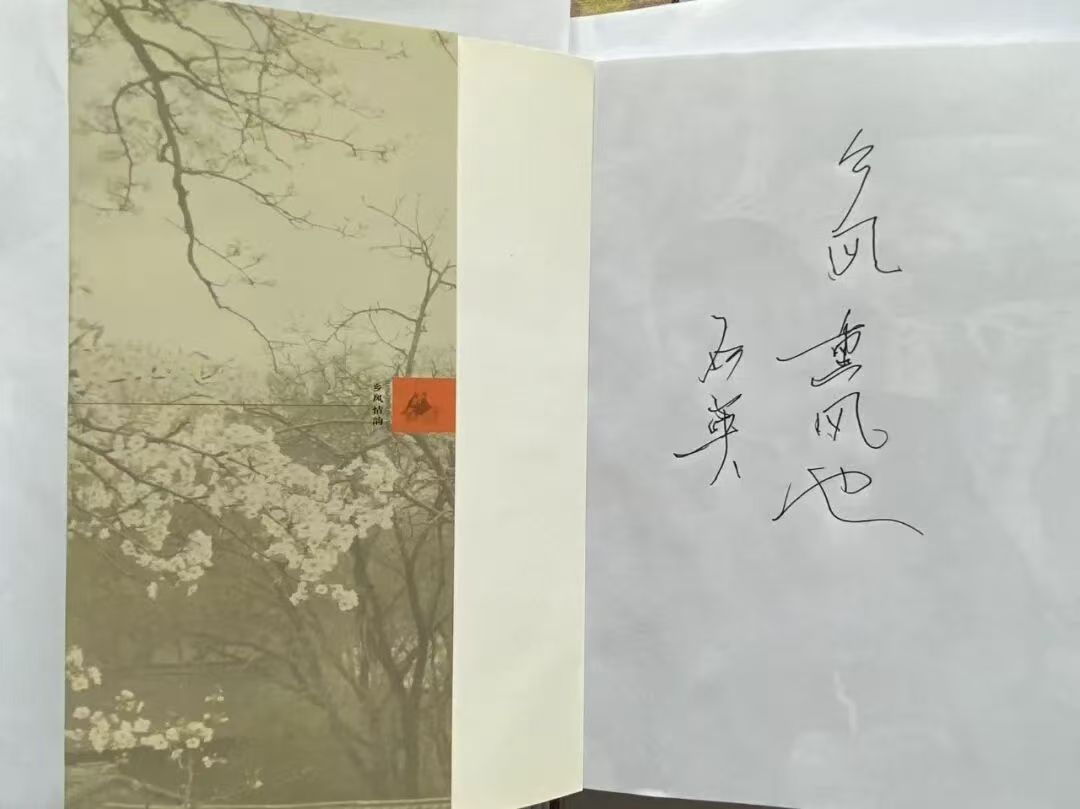 乡风情韵
乡风熏风也
石英